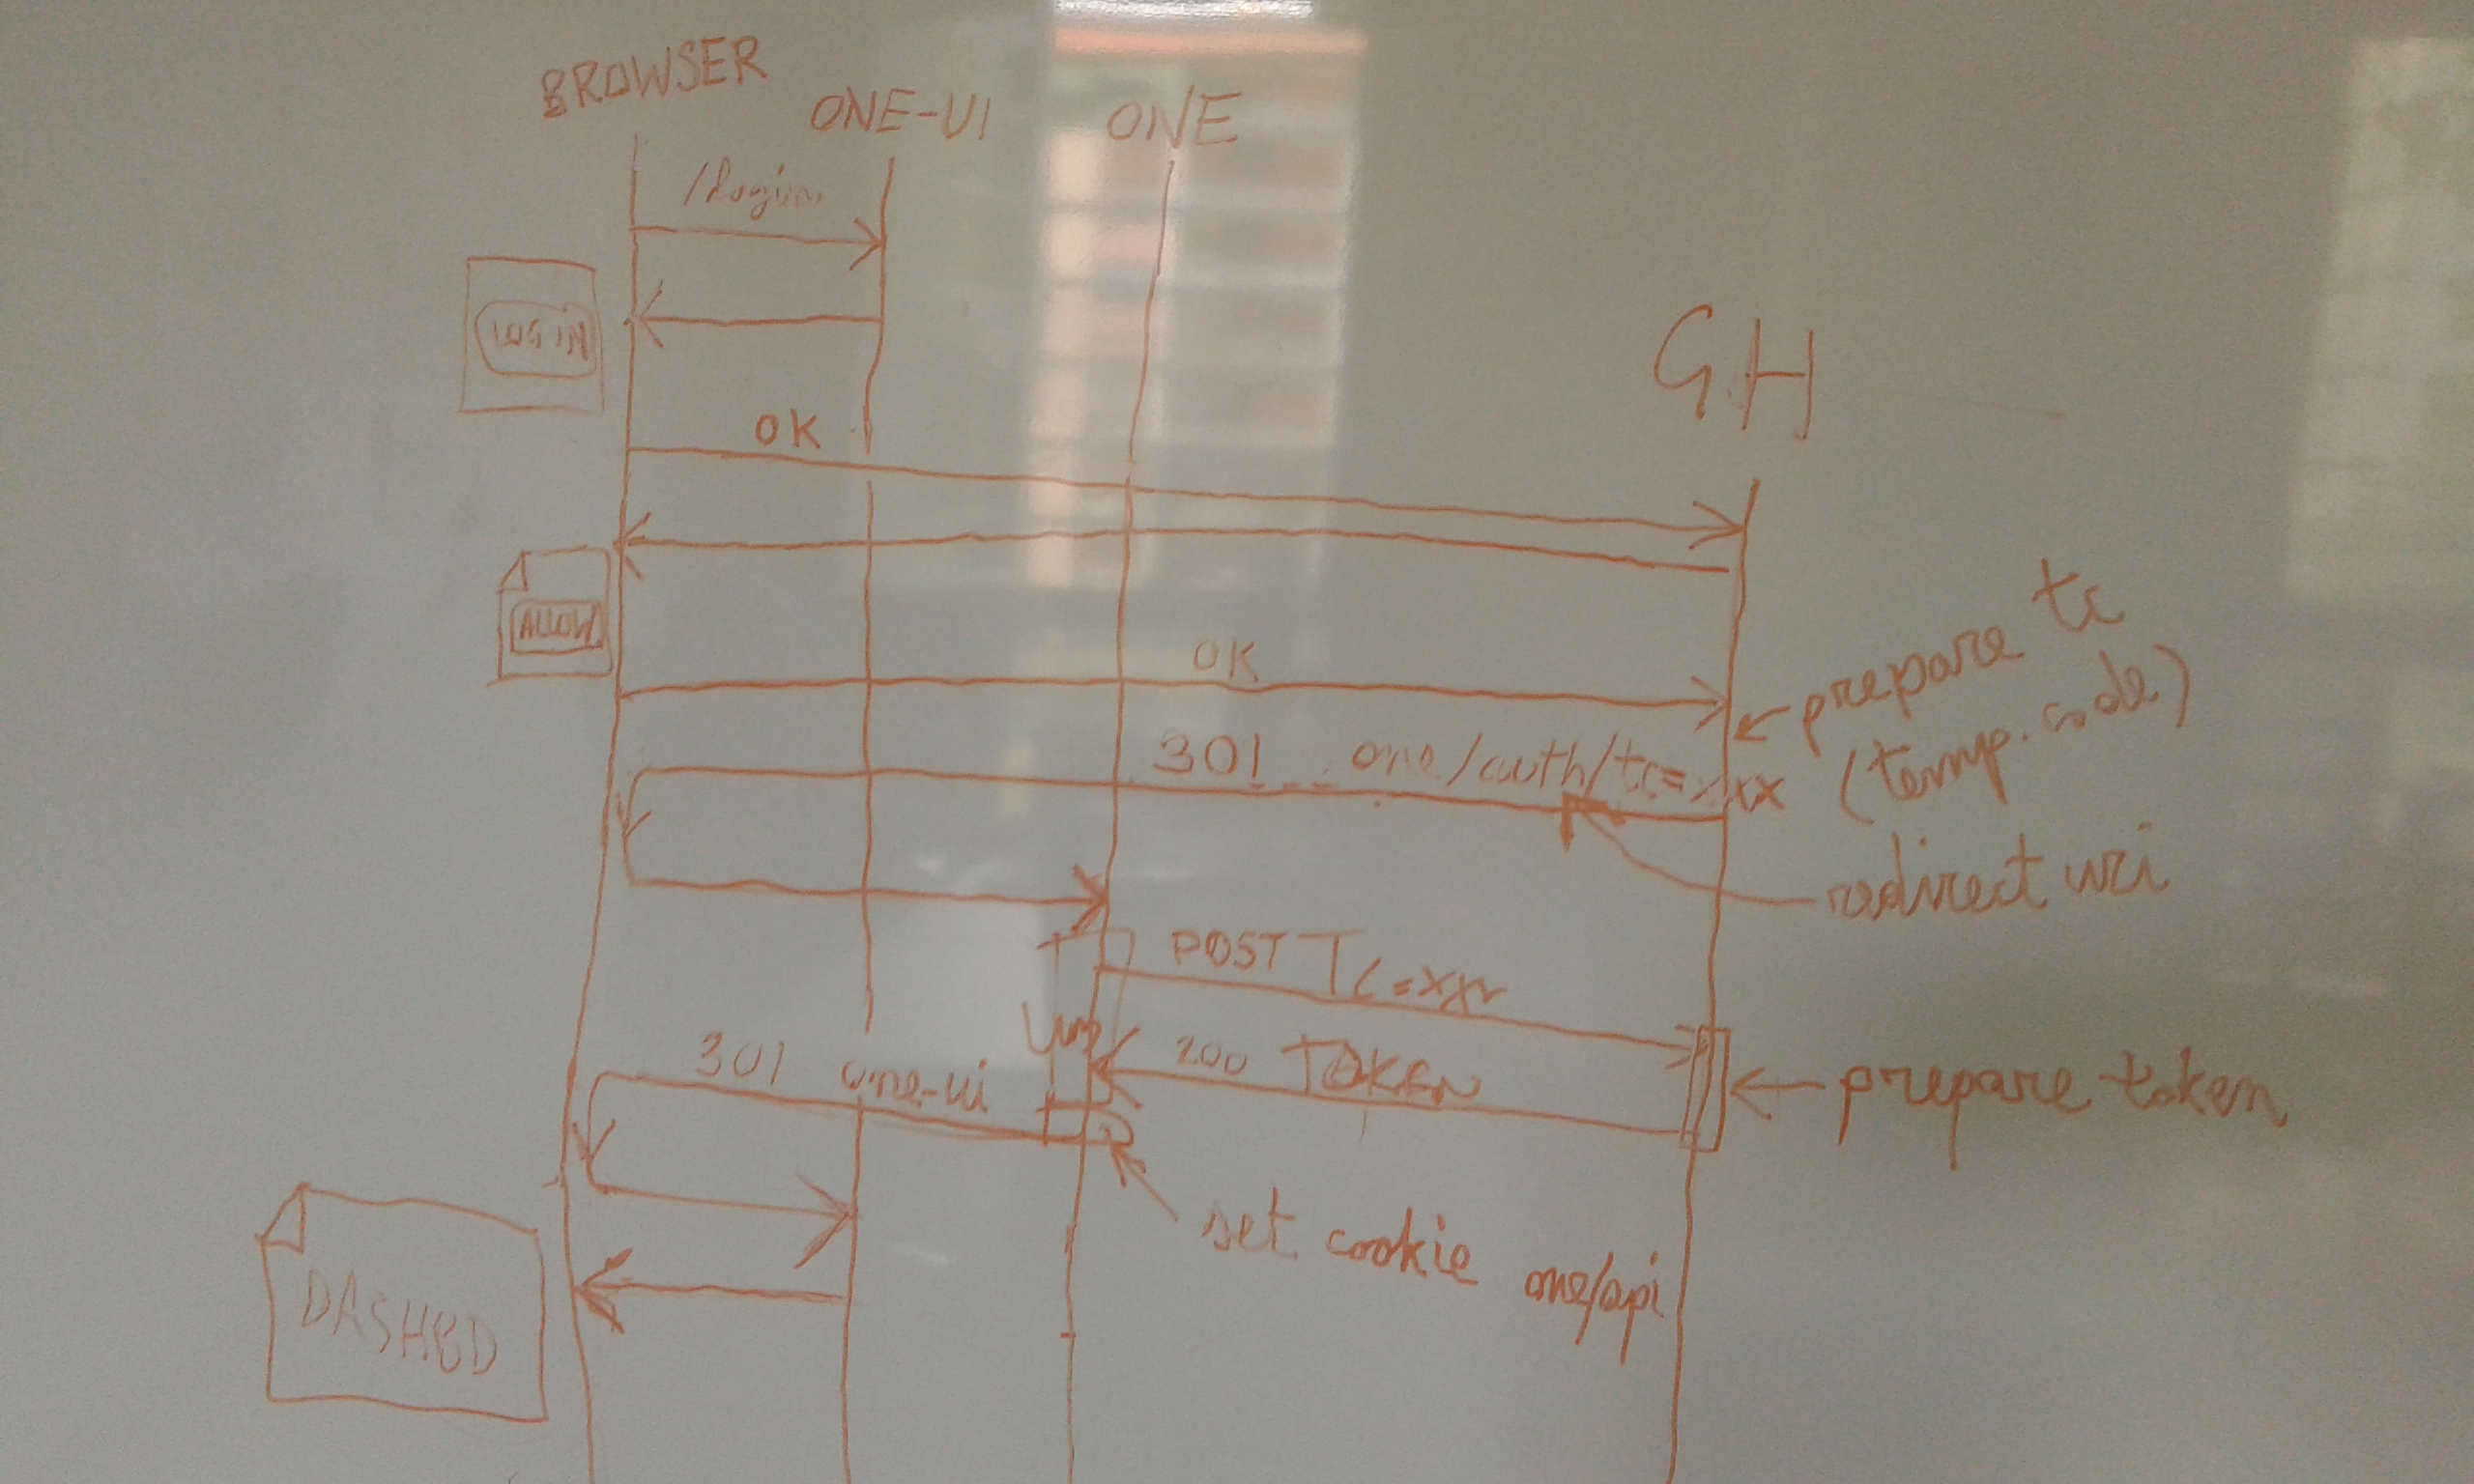 BROWSER
ONE-UI
ONE
/login
LOGIN
GH
OK
ALLOW
OK
prepare tc
(temp. code)
301 one/auth/tc=xxx
redirect uri
POST TC=xxx
200 TOKEN
301 one-ui
prepare token
set cookie one/api
DASHBD